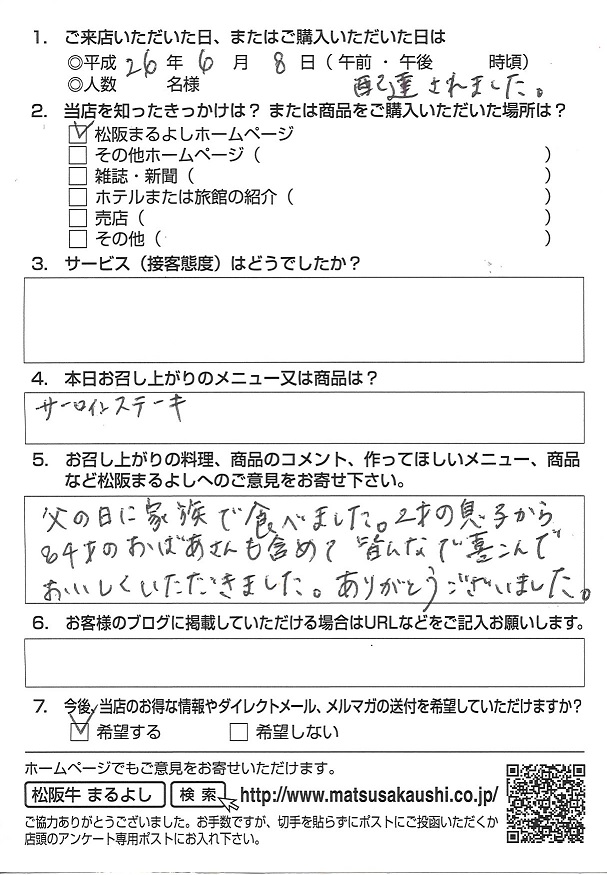 1. ご来店いただいた日、またはご購入いただいた日は
◎平成 26 年 6 月 8 日（午前・午後　　時頃）
◎人数　　名様　　配達されました。
2. 当店を知ったきっかけは？ または商品をご購入いただいた場所は？
☑ 松阪まるよしホームページ
□ その他ホームページ（　　）
□ 雑誌・新聞（　　）
□ ホテルまたは旅館の紹介（　　）
□ 売店（　　）
□ その他（　　）
3. サービス（接客態度）はどうでしたか？
4. 本日お召し上がりのメニュー又は商品は？
サーロインステーキ
5. お召し上がりの料理、商品のコメント、作ってほしいメニュー、商品
など松阪まるよしへのご意見をお寄せ下さい。
父の日に家族で食べました。2才の息子から
84才のおばあさんも含めて皆んなで喜こんで
おいしくいただきました。ありがとうございました。
6. お客様のブログに掲載していただける場合はURLなどをご記入お願いします。
7. 今後、当店のお得な情報やダイレクトメール、メルマガの送付を希望していただけますか？
☑ 希望する　□ 希望しない
ホームページでもご意見をお寄せいただけます。
松阪牛 まるよし 検索 http://www.matsusakaushi.co.jp/
ご協力ありがとうございました。お手数ですが、切手を貼らずにポストにご投函いただくか
店頭のアンケート専用ポストにお入れ下さい。